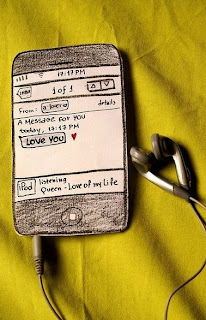 17:17 PM
INBOX 1 of 1
From: a lover details
A Message FOR YOU
today, 17:17 PM
LOVE YOU
iPod listening
Queen - Love of my life